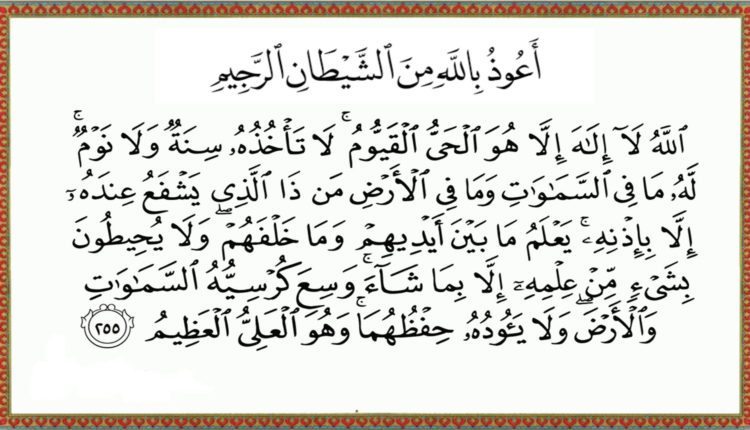 أَعُوذُ بِاللَّهِ مِنَ ٱلشَّيْطَانِ ٱلرَّجِيمِ
ٱللَّهُ لَآ إِلَٰهَ إِلَّا هُوَ ٱلْحَىُّ ٱلْقَيُّومُ ۚ لَا تَأْخُذُهُۥ سِنَةٌ وَلَا نَوْمٌ ۚ
لَّهُۥ مَا فِى ٱلسَّمَٰوَٰتِ وَمَا فِى ٱلْأَرْضِ مَن ذَا ٱلَّذِى يَشْفَعُ عِندَهُۥٓ
إِلَّا بِإِذْنِهِۦ ۚ يَعْلَمُ مَا بَيْنَ أَيْدِيهِمْ وَمَا خَلْفَهُمْ ۖ وَلَا يُحِيطُونَ
بِشَىْءٍ مِّنْ عِلْمِهِۦٓ إِلَّا بِمَا شَآءَ ۚ وَسِعَ كُرْسِيُّهُ ٱلسَّمَٰوَٰتِ
وَٱلْأَرْضَ ۖ وَلَا يَـُٔودُهُۥ حِفْظُهُمَا ۚ وَهُوَ ٱلْعَلِىُّ ٱلْعَظِيمُ ٢٥٥